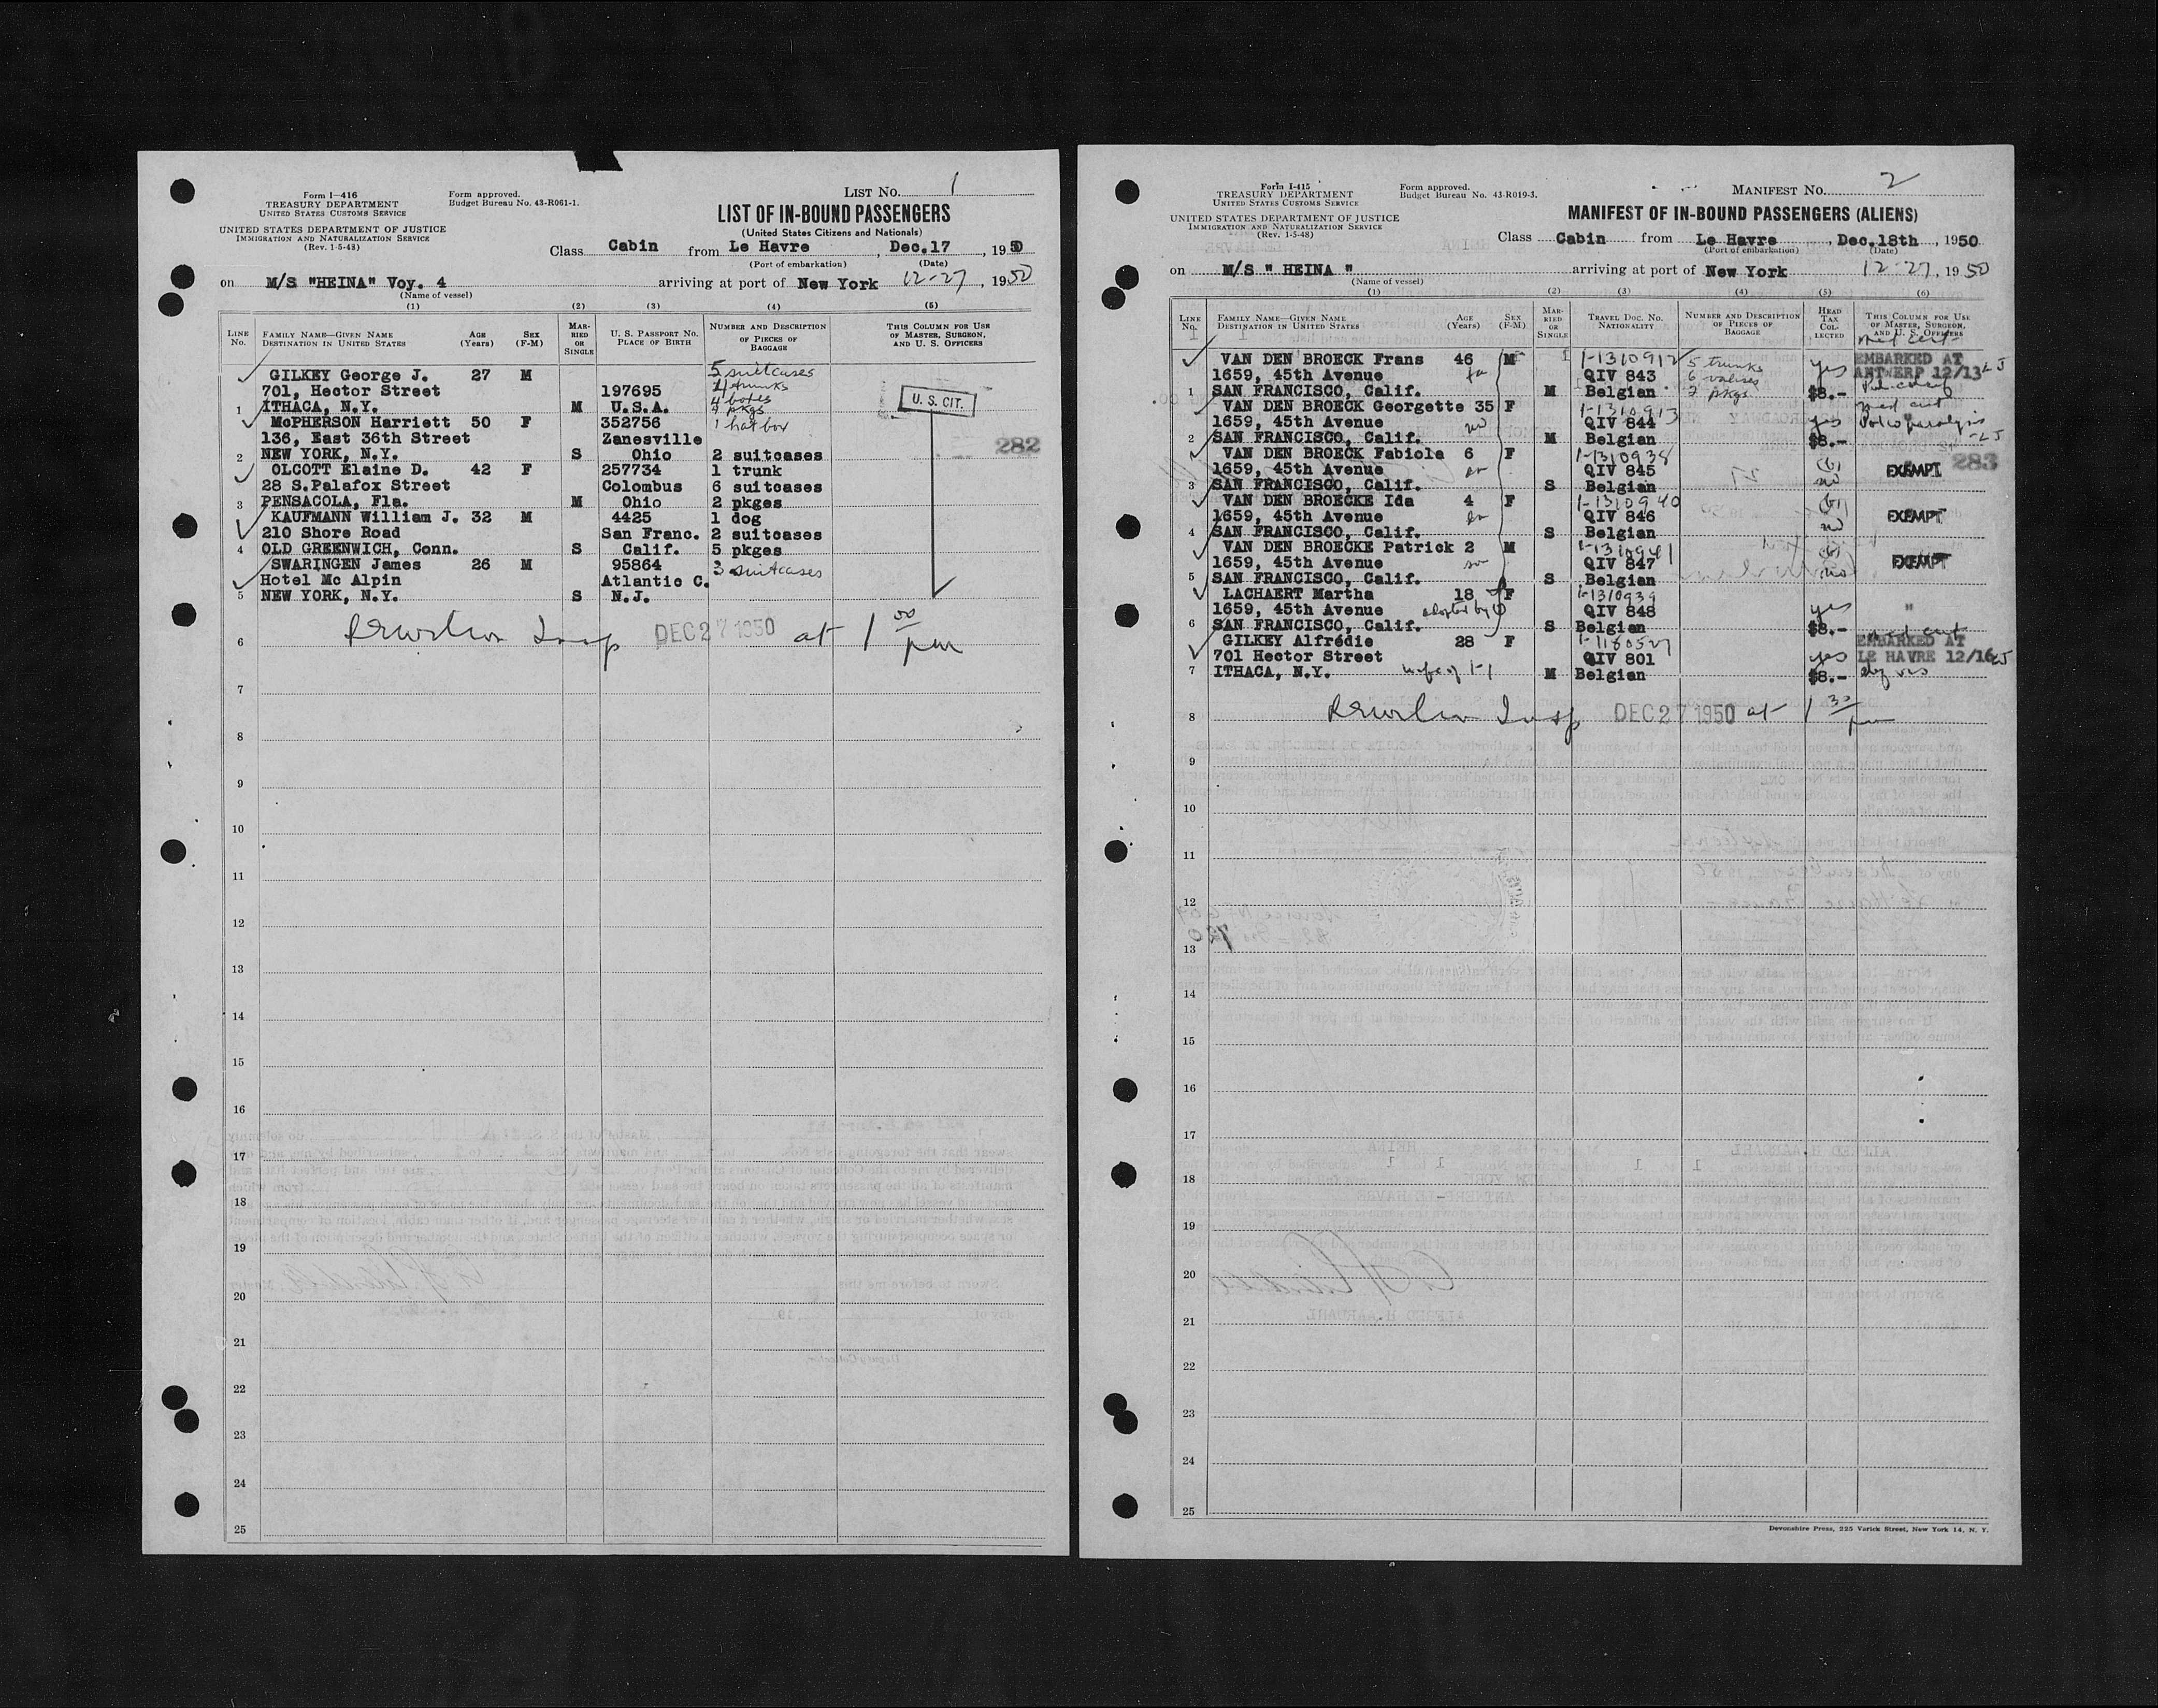 Form I-416
TREASURY DEPARTMENT
UNITED STATES CUSTOMS SERVICE
UNITED STATES DEPARTMENT OF JUSTICE
IMMIGRATION AND NATURALIZATION SERVICE
(Rev. 1-5-48)
Form approved.
Budget Bureau No. 43-R061-1.
LIST NO. 1
LIST OF IN-BOUND PASSENGERS
(United States Citizens and Nationals)
Class Cabin from Le Havre, Dec.17, 1950
(Port of embarkation) (Date)
on M/S "HEINA" Voy. 4 arriving at port of New York 12-27, 1950
(Name of vessel)
(1) (2) (3) (4) (5)
LINE No. FAMILY NAME—GIVEN NAME DESTINATION IN UNITED STATES AGE (Years) SEX (F-M) MARRIED OR SINGLE U. S. PASSPORT NO. PLACE OF BIRTH NUMBER AND DESCRIPTION OF PIECES OF BAGGAGE THIS COLUMN FOR USE OF MASTER, SURGEON, AND U. S. OFFICERS
5 suitcases
GILKEY George J. 27 M 4 trunks
701, Hector Street 197695 4 boxes
1 ITHACA, N.Y. M U.S.A. pkgs U. S. CIT.
McPHERSON Harriett 50 F 352756 1 hat box
136, East 36th Street Zanesville 282
2 NEW YORK, N.Y. S Ohio 2 suitcases
OLCOTT Elaine D. 42 F 257734 1 trunk
28 S.Palafox Street Colombus 6 suitcases
3 PENSACOLA, Fla. M Ohio 2 pkges
KAUFMANN William J. 32 M 4425 1 dog
210 Shore Road San Franc. 2 suitcases
4 OLD GREENWICH, Conn. S Calif. 5 pkges
SWARINGEN James 26 M 95864 3 suitcases
Hotel Mc Alpin Atlantic C.
5 NEW YORK, N.Y. S N.J.
6 Insp DEC 27 1950 at 1 00 pm
7
8
9
10
11
12
13
14
15
16
17
18
19
20
21
22
23
24
25
Form I-415
TREASURY DEPARTMENT
UNITED STATES CUSTOMS SERVICE
UNITED STATES DEPARTMENT OF JUSTICE
IMMIGRATION AND NATURALIZATION SERVICE
(Rev. 1-5-48)
Form approved.
Budget Bureau No. 43-R019-3.
MANIFEST NO. 2
MANIFEST OF IN-BOUND PASSENGERS (ALIENS)
Class Cabin from Le Havre, Dec.18th, 1950
(Port of embarkation) (Date)
on M/S " HEINA " arriving at port of New York 12-27, 1950
(Name of vessel)
(1) (2) (3) (4) (5) (6)
LINE No. FAMILY NAME—GIVEN NAME DESTINATION IN UNITED STATES AGE (Years) SEX (F-M) MARRIED OR SINGLE TRAVEL DOC. NO. NATIONALITY NUMBER AND DESCRIPTION OF PIECES OF BAGGAGE HEAD TAX COLLECTED THIS COLUMN FOR USE OF MASTER, SURGEON, AND U. S. OFFICERS
med cert
VAN DEN BROECK Frans 46 M 1-1310912 5 trunks yes EMBARKED AT
1659, 45th Avenue QIV 843 6 valises ANTWERP 12/13
1 SAN FRANCISCO, Calif. M Belgian 7 pkgs $8.-
VAN DEN BROECK Georgette 35 F 1-1310913 med cert
1659, 45th Avenue QIV 844 yes
2 SAN FRANCISCO, Calif. M Belgian $8.-
VAN DEN BROECK Fabiola 6 F 1-1310938 283
1659, 45th Avenue QIV 845 no EXEMPT
3 SAN FRANCISCO, Calif. S Belgian
VAN DEN BROECKE Ida 4 F 1-1310940
1659, 45th Avenue QIV 846 no EXEMPT
4 SAN FRANCISCO, Calif. S Belgian
VAN DEN BROECKE Patrick 2 M 1-1310941
1659, 45th Avenue QIV 847 no EXEMPT
5 SAN FRANCISCO, Calif. S Belgian
LACHAERT Martha 18 F 1-1310939
1659, 45th Avenue adopted by QIV 848 yes "
6 SAN FRANCISCO, Calif. S Belgian $8.- med cert
GILKEY Alfrédie 28 F 1-1180527 EMBARKED AT
701 Hector Street QIV 801 yes LE HAVRE 12/16
7 ITHACA, N.Y. wife of 1-1 M Belgian $8.-
8 Insp DEC 27 1950 at 1 30 pm
9
10
11
12
13
14
15
16
17
18
19
20
21
22
23
24
25
Devonshire Press, 225 Varick Street, New York 14, N. Y.